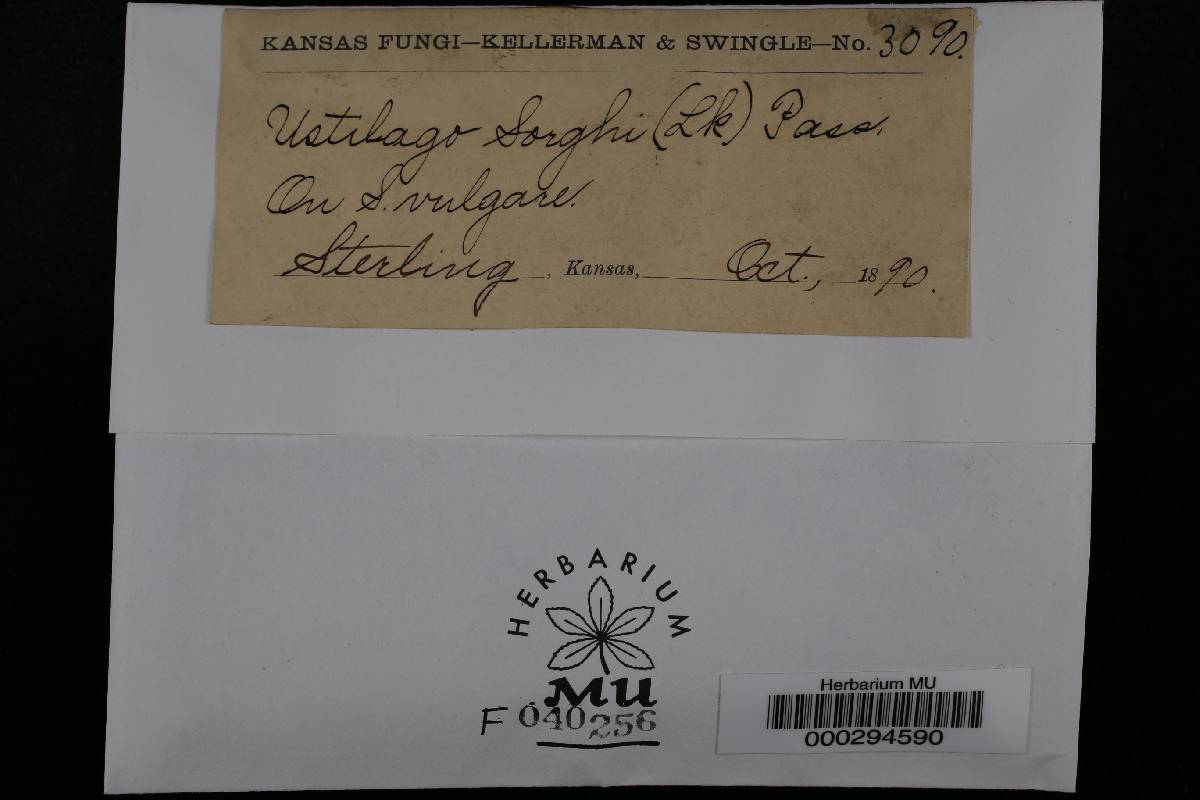 KANSAS FUNGI—KELLERMAN & SWINGLE—No. 3090.
Ustilago Sorghi (Lk) Pass.
On S. vulgare.
Sterling, Kansas, Oct., 1890.
HERBARIUM
MU
F 040256
Herbarium MU
000294590